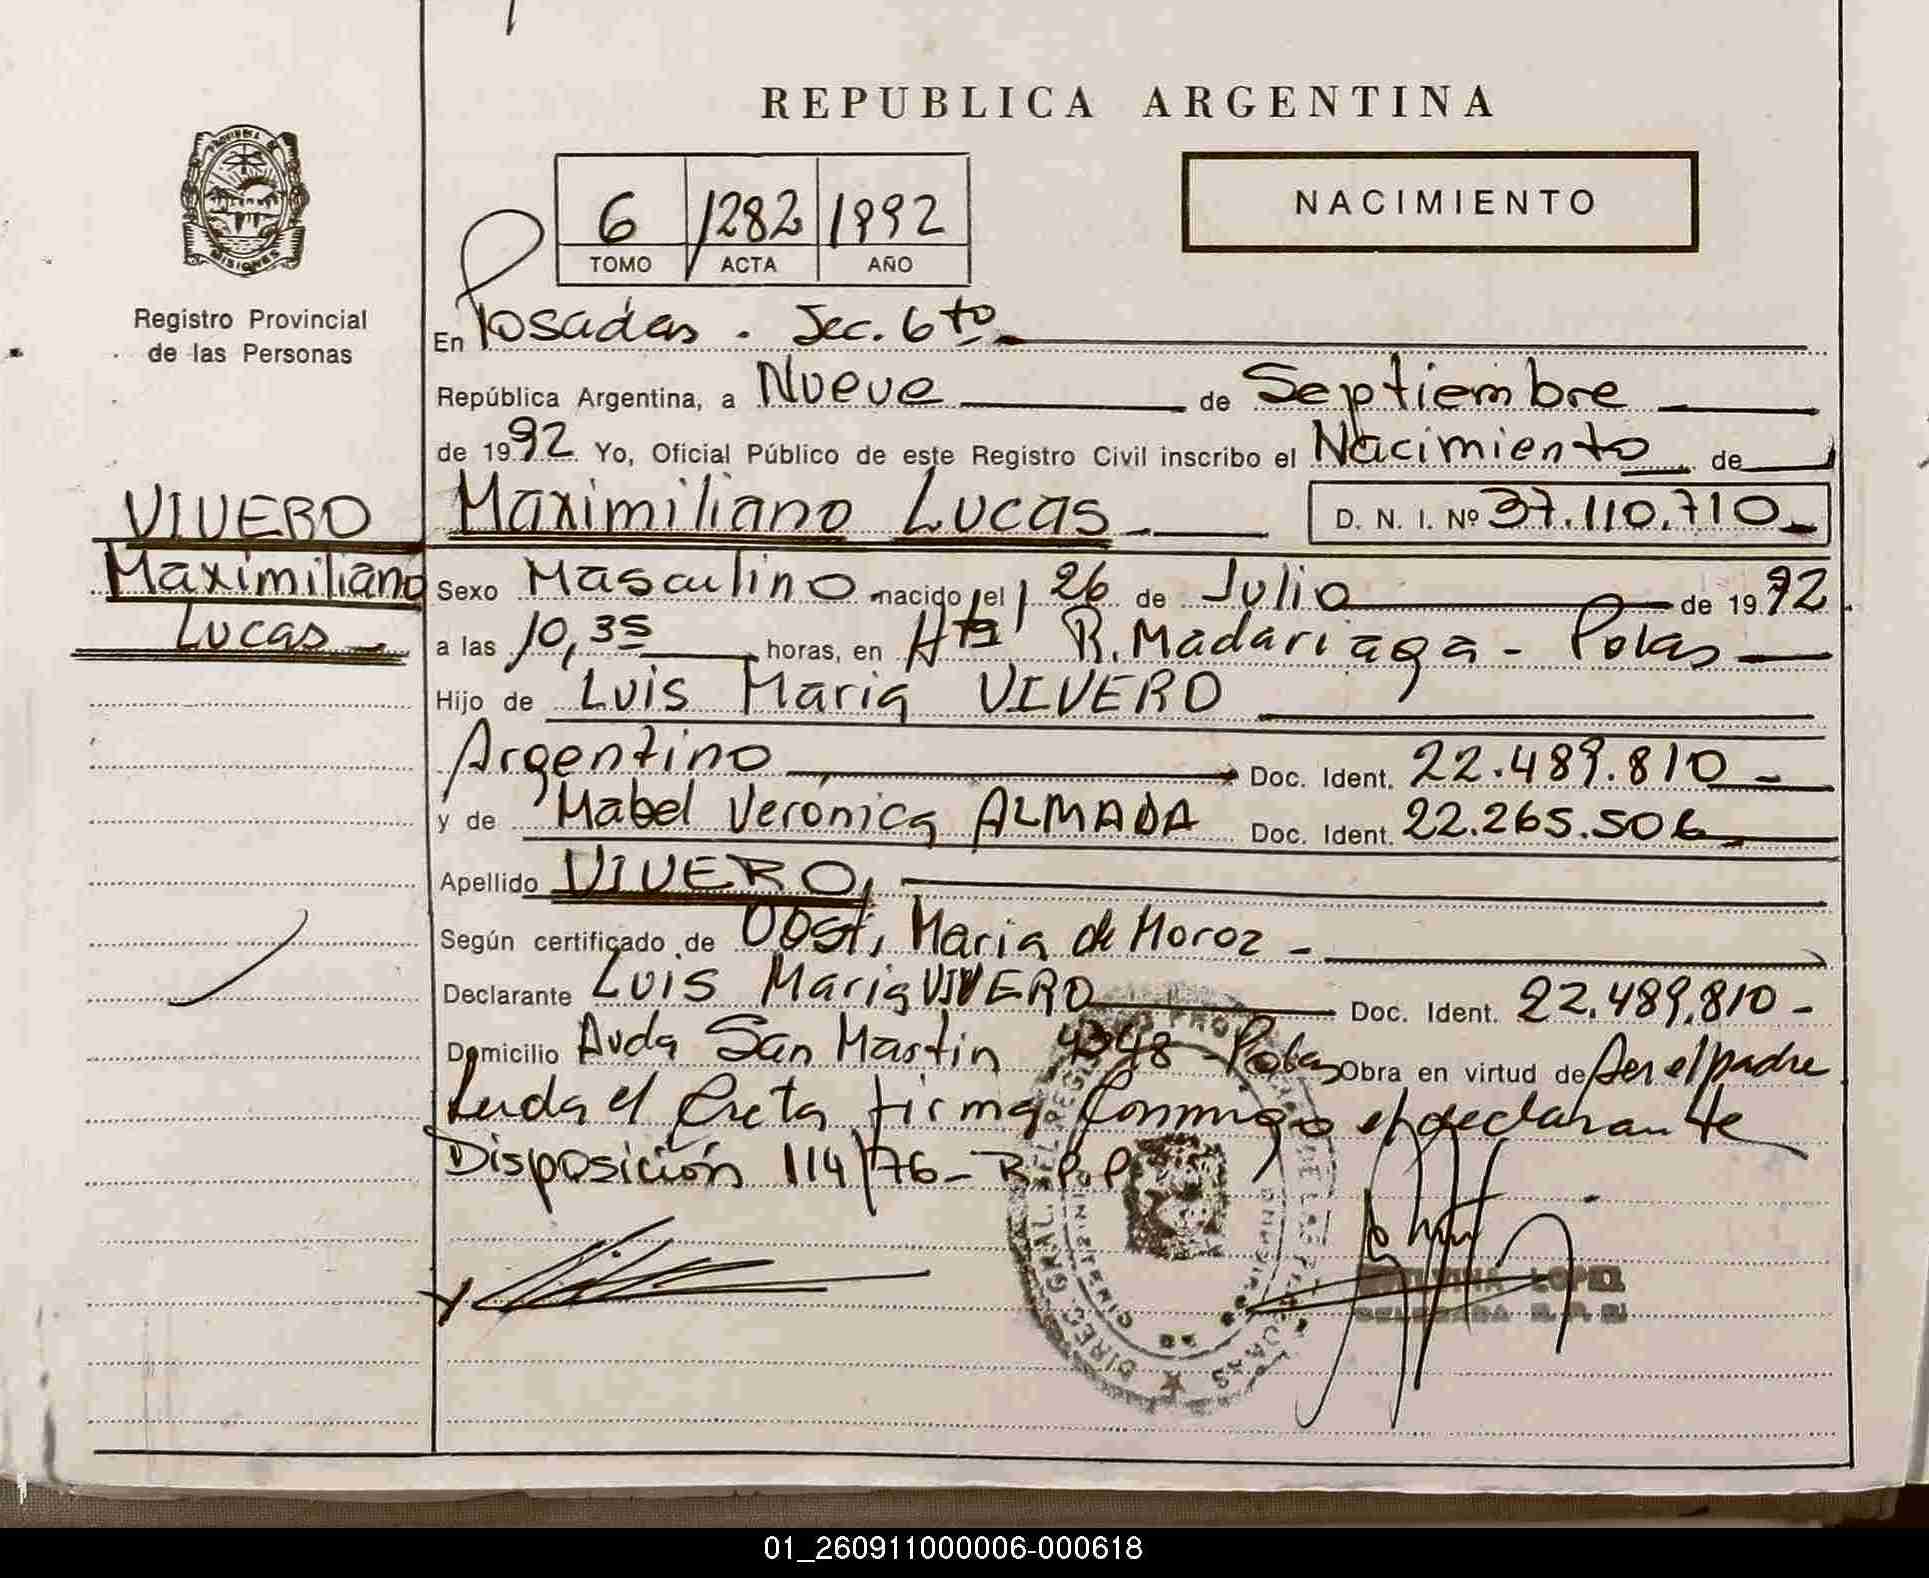 REPUBLICA ARGENTINA
NACIMIENTO
6 1282 1992
TOMO ACTA AÑO
PROVINCIA DE
MISIONES
Registro Provincial
de las Personas
VIVERO
Maximiliano
Lucas
En Posadas. Sec. 6to
República Argentina, a Nueve de Septiembre
de 1992 Yo, Oficial Público de este Registro Civil inscribo el Nacimiento de
Maximiliano Lucas D. N. I. Nº 37.110.710
Sexo Masculino nacido el 26 de Julio de 1992
a las 10,35 horas, en Hta R. Madariaga - Pdas
Hijo de Luis Maria VIVERO
Argentino Doc. Ident. 22.489.810
y de Mabel Verónica ALMADA Doc. Ident. 22.265.506
Apellido VIVERO,
Según certificado de Obst, Maria de Moroz -
Declarante Luis Maria VIVERO Doc. Ident. 22.489.810 -
Domicilio Avda San Martin 4348 - Pdas Obra en virtud de Ser el padre
Leida el firma Conmigo el declarante
Disposición 114/76 - R.P.P
DIREC. GRAL. DEL REGISTRO PROV. DE LAS PERSONAS
LOPEZ
DELEGADA R. P. P.
01_260911000006-000618